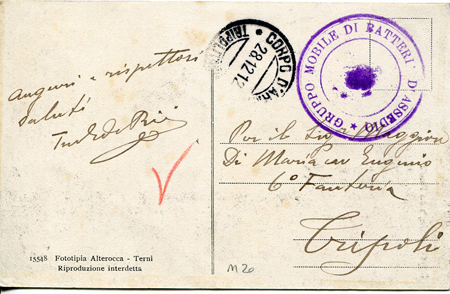 Auguri e rispettosi
saluti
CORPO D'AR
TRIPOLI
28.12.12
GRUPPO MOBILE DI BATTERI D'ASSEDIO
Per il Sig Maggiore
Di Maria cav Eugenio
6° Fanteria
Tripoli
15548 Fototipia Alterocca - Terni
Riproduzione interdetta
M 20